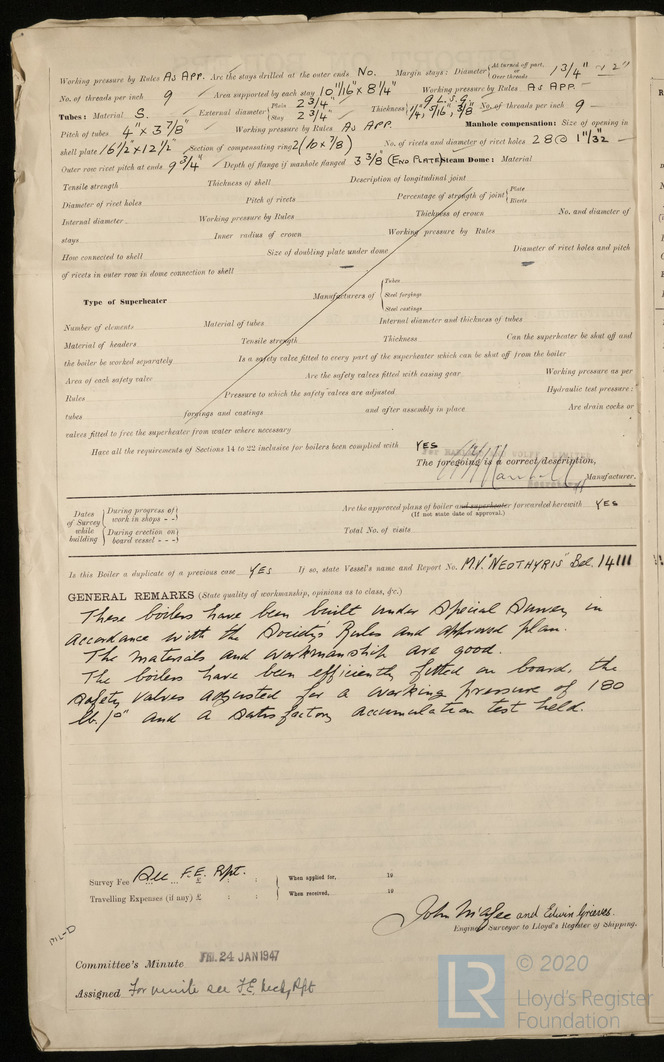 Working pressure by Rules As App. Are the stays drilled at the outer ends No. Margin stays: Diameter { At turned off part, or Over threads 1 3/4" - 2"
No. of threads per inch 9 Area supported by each stay 10 11/16" x 8 1/4" Working pressure by Rules As App.
Tubes: Material S. External diameter { Plain 2 3/4" Stay 2 3/4" Thickness { 9 L.S.G. 1/4, 5/16, 3/8" No. of threads per inch 9
Pitch of tubes 4" x 3 7/8" Working pressure by Rules As App. Manhole compensation: Size of opening in
shell plate 16 1/2" x 12 1/2" Section of compensating ring 2(10 x 7/8) No. of rivets and diameter of rivet holes 28 @ 1 1/32"
Outer row rivet pitch at ends 9 3/4" Depth of flange if manhole flanged 3 3/8 (End Plate) Steam Dome: Material
Tensile strength Thickness of shell Description of longitudinal joint
Diameter of rivet holes Pitch of rivets Percentage of strength of joint { Plate Rivets
Internal diameter Working pressure by Rules Thickness of crown No. and diameter of
stays Inner radius of crown Working pressure by Rules
How connected to shell Size of doubling plate under dome Diameter of rivet holes and pitch
of rivets in outer row in dome connection to shell
Type of Superheater Manufacturers of { Tubes Steel forgings Steel castings
Number of elements Material of tubes Internal diameter and thickness of tubes
Material of headers Tensile strength Thickness Can the superheater be shut off and
the boiler be worked separately Is a safety valve fitted to every part of the superheater which can be shut off from the boiler
Area of each safety valve Are the safety valves fitted with easing gear Working pressure as per
Rules Pressure to which the safety valves are adjusted Hydraulic test pressure:
tubes forgings and castings and after assembly in place Are drain cocks or
valves fitted to free the superheater from water where necessary
Have all the requirements of Sections 14 to 22 inclusive for boilers been complied with Yes
For HARLAND AND WOLFF LIMITED
The foregoing is a correct description,
Secretary Manufacturer.
Dates of Survey while building { During progress of work in shops - - } { During erection on board vessel - - - }
Are the approved plans of boiler and superheater forwarded herewith Yes
(If not state date of approval.)
Total No. of visits
Is this Boiler a duplicate of a previous case Yes If so, state Vessel's name and Report No. M.V. "Neothyris" Bel. 14111
GENERAL REMARKS (State quality of workmanship, opinions as to class, &c.)
These boilers have been built under Special Survey in
accordance with the Society's Rules and approved plan.
The materials and workmanship are good.
The boilers have been efficiently fitted on board, the
safety valves adjusted for a working pressure of 180
lb./□" and a satisfactory accumulation test held.
Survey Fee See F.E. Rpt. £ : : When applied for, 19
Travelling Expenses (if any) £ : : When received, 19
John McAfee and Edwin Greeves.
Engineer Surveyor to Lloyd's Register of Shipping.
Committee's Minute FRI. 24 JAN 1947
Assigned For minute see F.E. Mchy Rpt
© 2020
LR
Lloyd's Register
Foundation